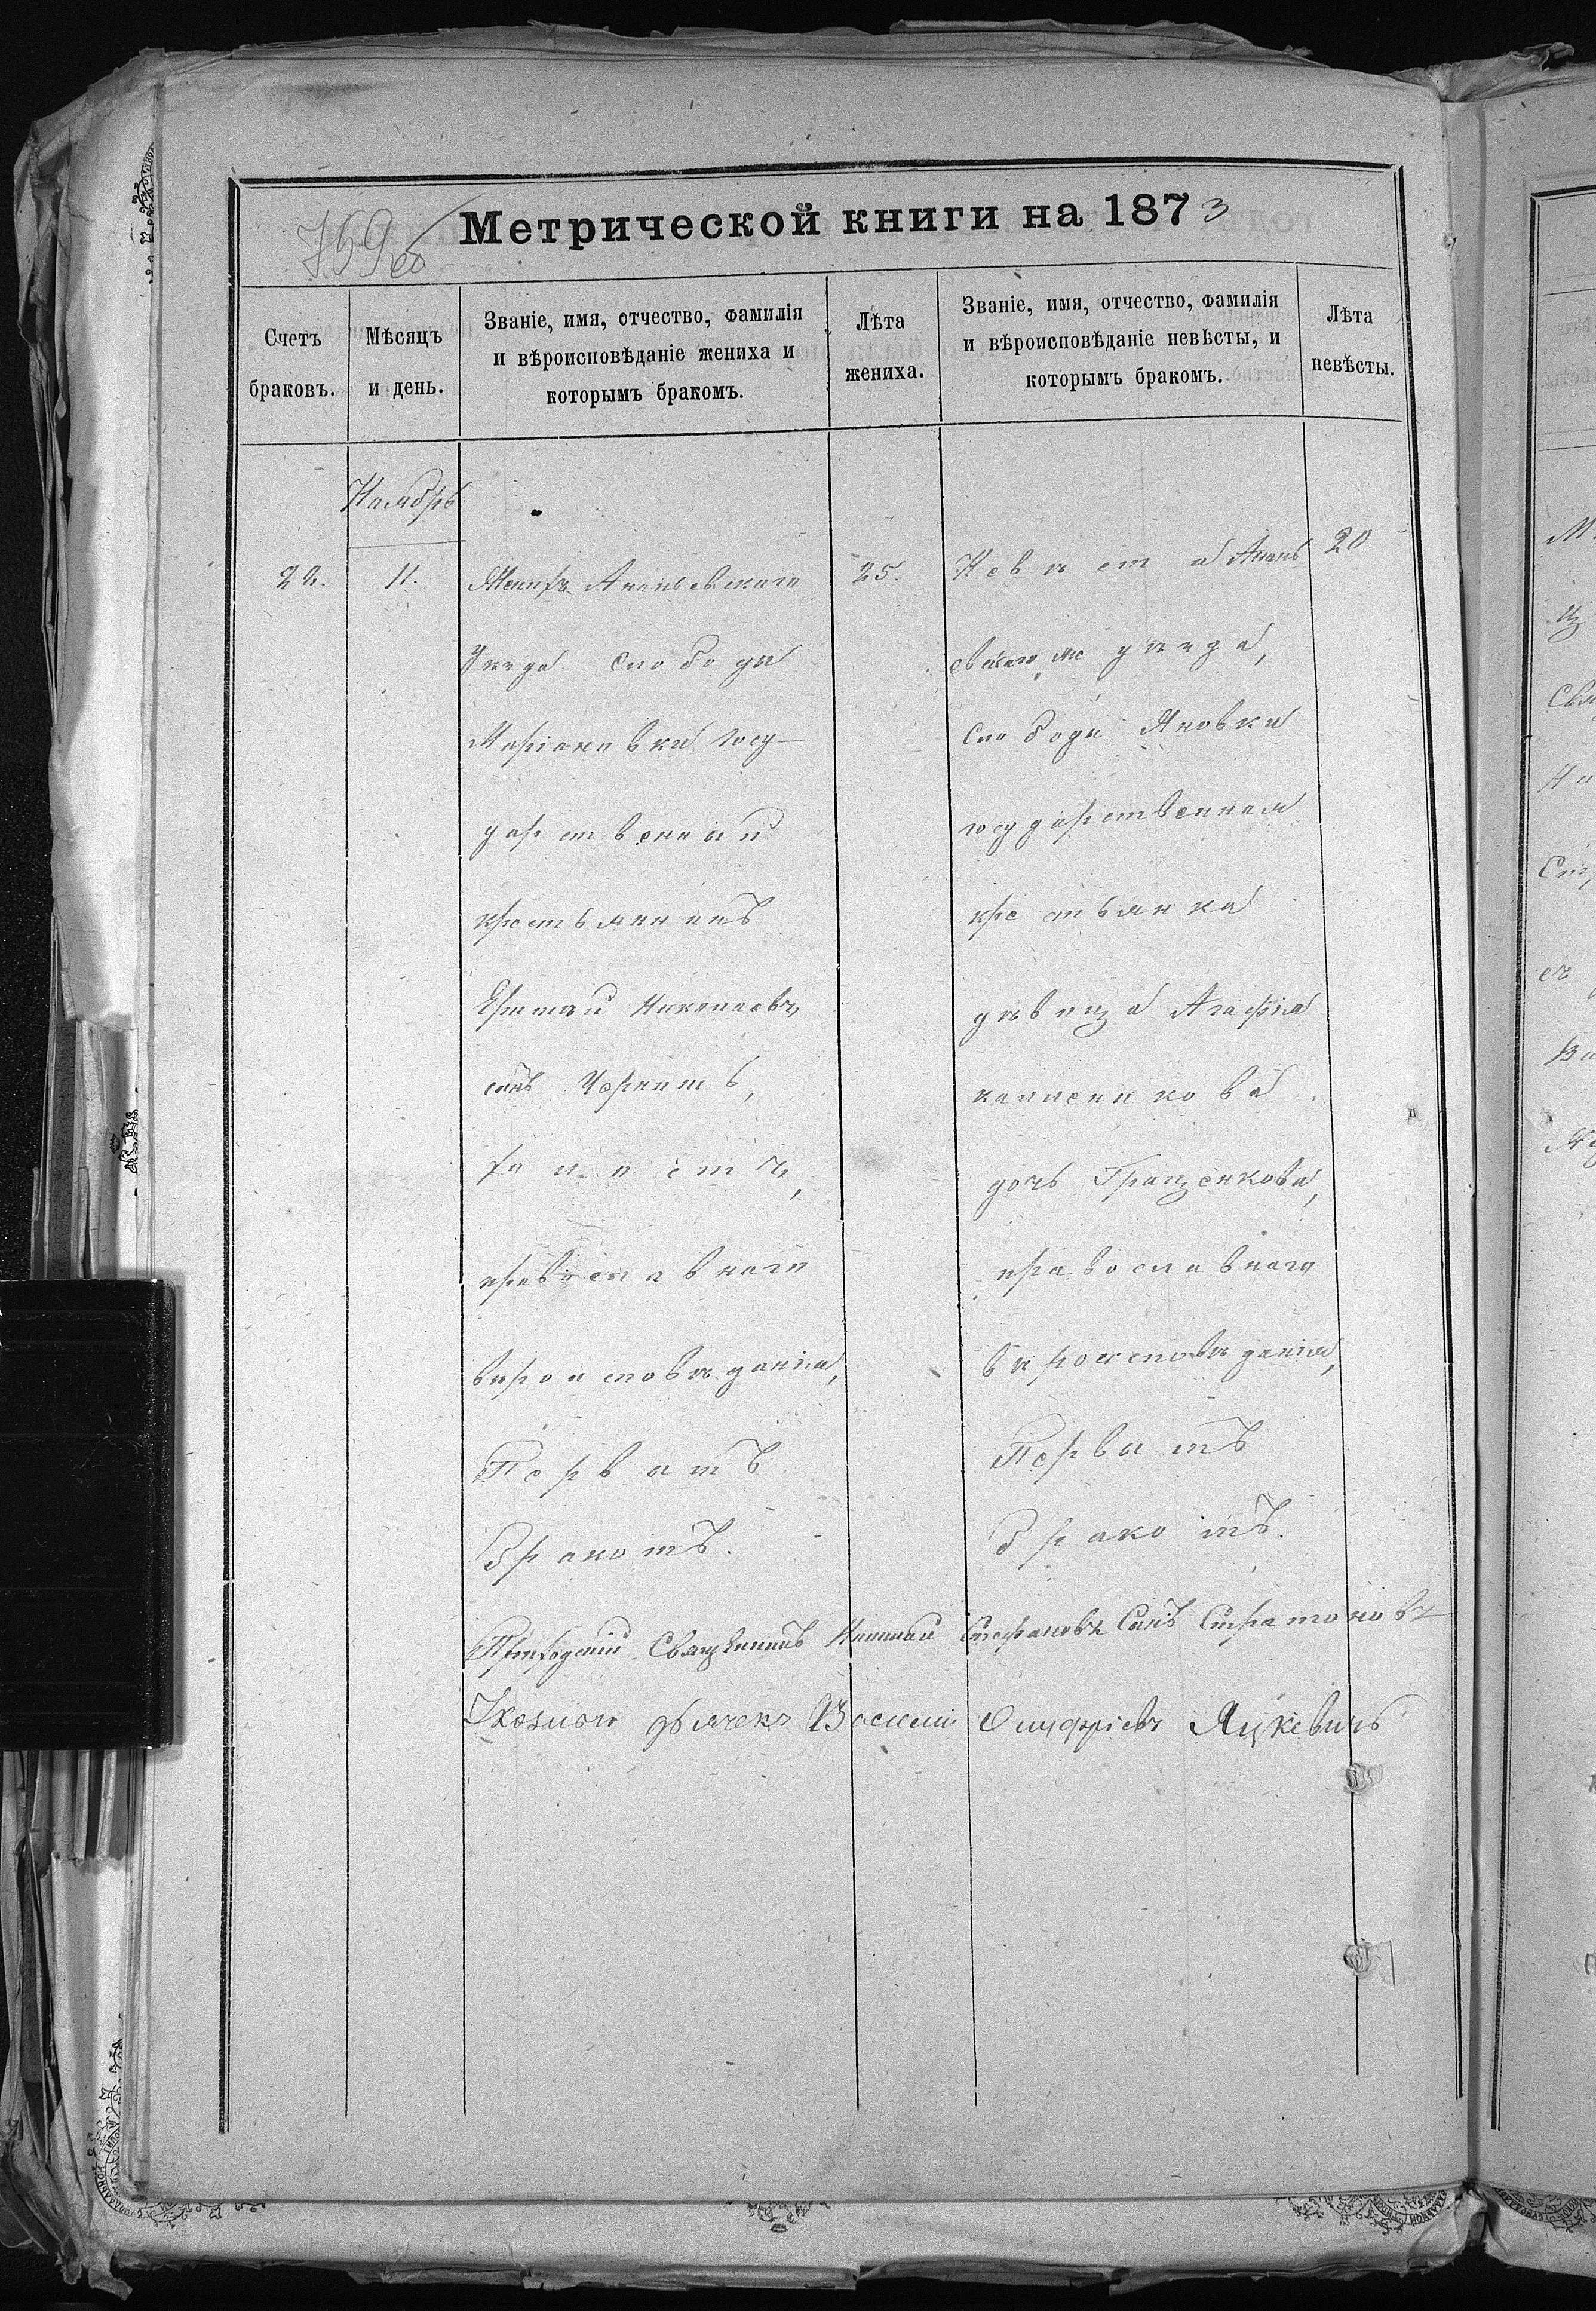 759об
Метрической книги на 1873
Счетъ браковъ.
Мѣсяцъ и день.
Званіе, имя, отчество, фамилія и вѣроисповѣданіе жениха и которымъ бракомъ.
Лѣта жениха.
Званіе, имя, отчество, фамилія и вѣроисповѣданіе невѣсты, и которымъ бракомъ.
Лѣта невѣсты.
Ноябрь
22.
11.
Женихъ Ананьевскаго
уѣзда слободы
Маріановки госу-
дарственный
крестьянинъ
Николаевъ
сынъ
холостъ,
православнаго
вѣроисповѣданія,
Первымъ
бракомъ.
25.
Невѣста Анань
евскаго же уѣзда,
слободы Яновки
государственная
крестьянка
дѣвица Агафія
дочь Гращенкова,
православнаго
вѣроисповѣданія,
Первымъ
бракомъ.
20
Приходскій Священникъ Стефановъ Сынъ Стратоновъ
дьячекъ Василій Онуфріевъ Яцкевичъ